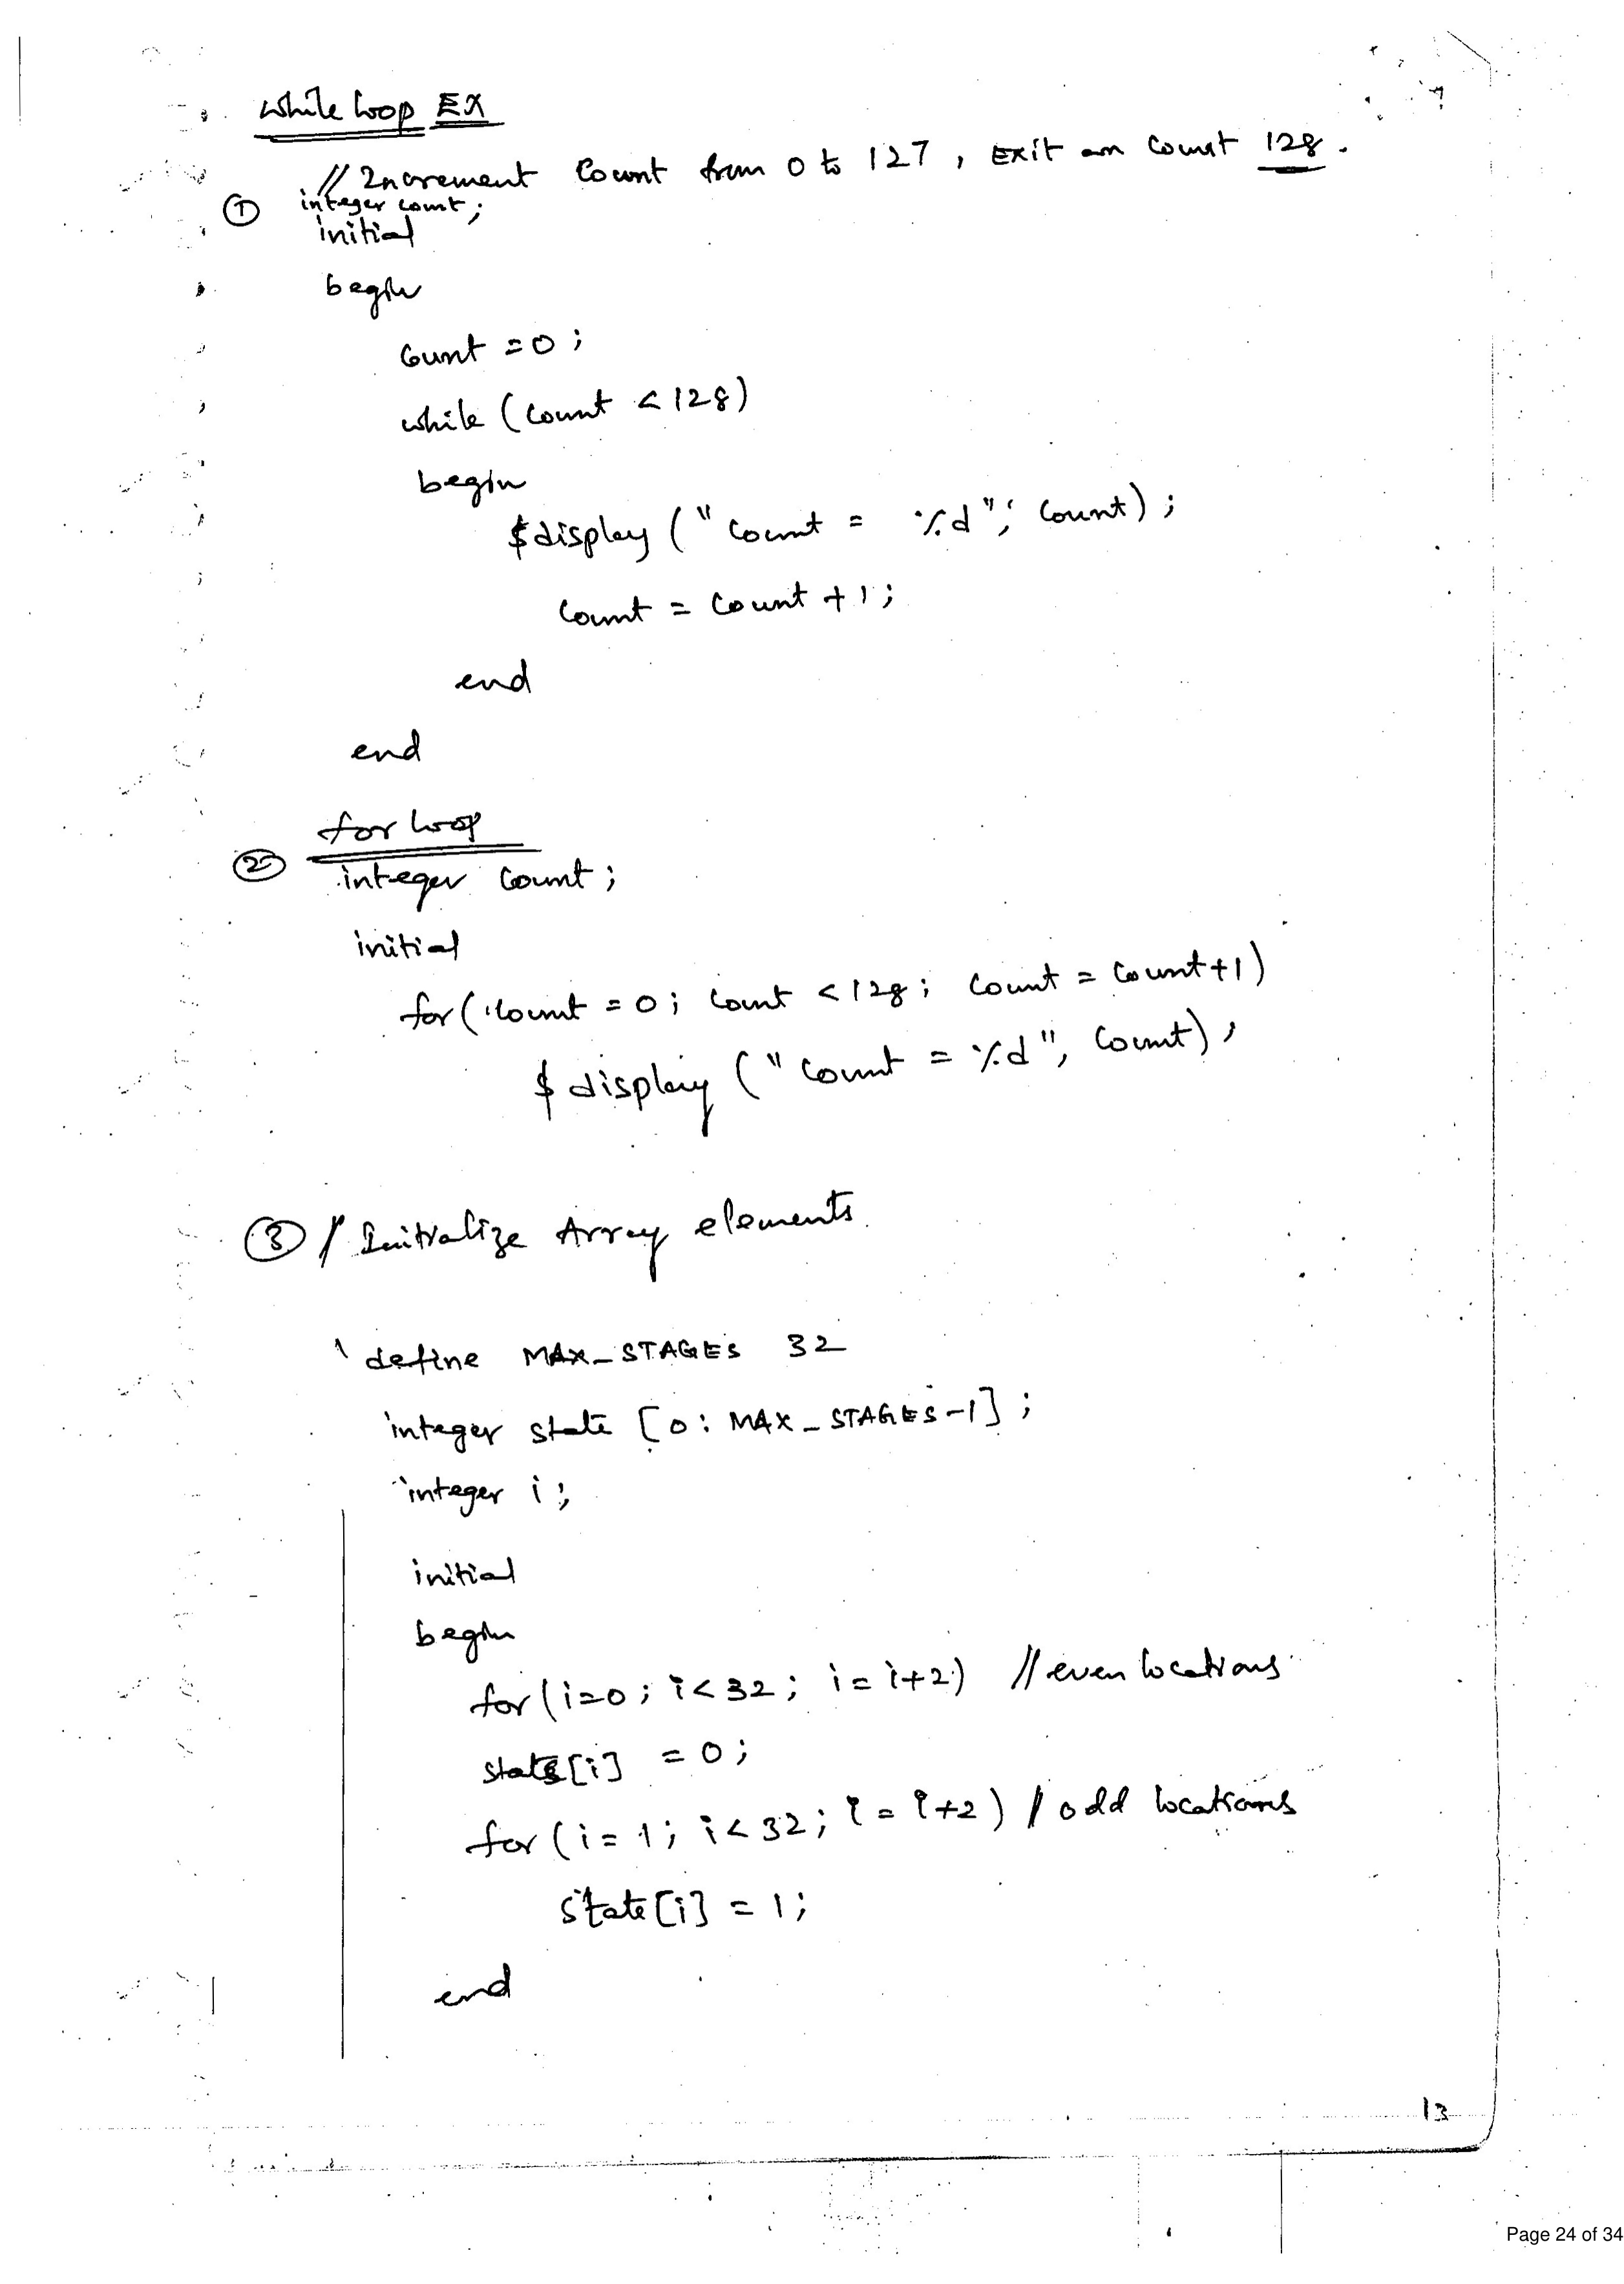 while loop EX
// Increment Count from 0 to 127, Exit on count 128.
① integer count;
initial
begin
count = 0;
while (count < 128)
begin
$display ("count = %d", count);
count = count + 1;
end
end
for loop
② integer count;
initial
for (count = 0; count < 128; count = count+1)
$display ("count = %d", count);
③ // Initialize Array elements.
` define MAX_STAGES 32
integer state [0: MAX_STAGES-1];
integer i;
initial
begin
for (i=0; i<32; i=i+2) // even locations
state[i] = 0;
for (i=1; i<32; i=i+2) // odd locations
state[i] = 1;
end
13
Page 24 of 34